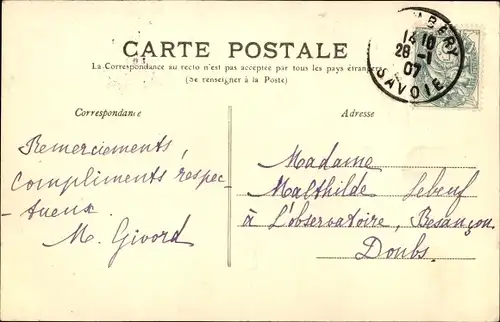 CARTE POSTALE
La Correspondance au recto n'est pas acceptée par tous les pays étrangers
(Se renseigner à la Poste)
BÉRY
14 10
28 -1
07
SAVOIE
Correspondance
Adresse
Remerciements,
compliments respec-
-tueux.
M. Givord
Madame
Malthilde Lebeuf
à L'observatoire, Besançon
Doubs.